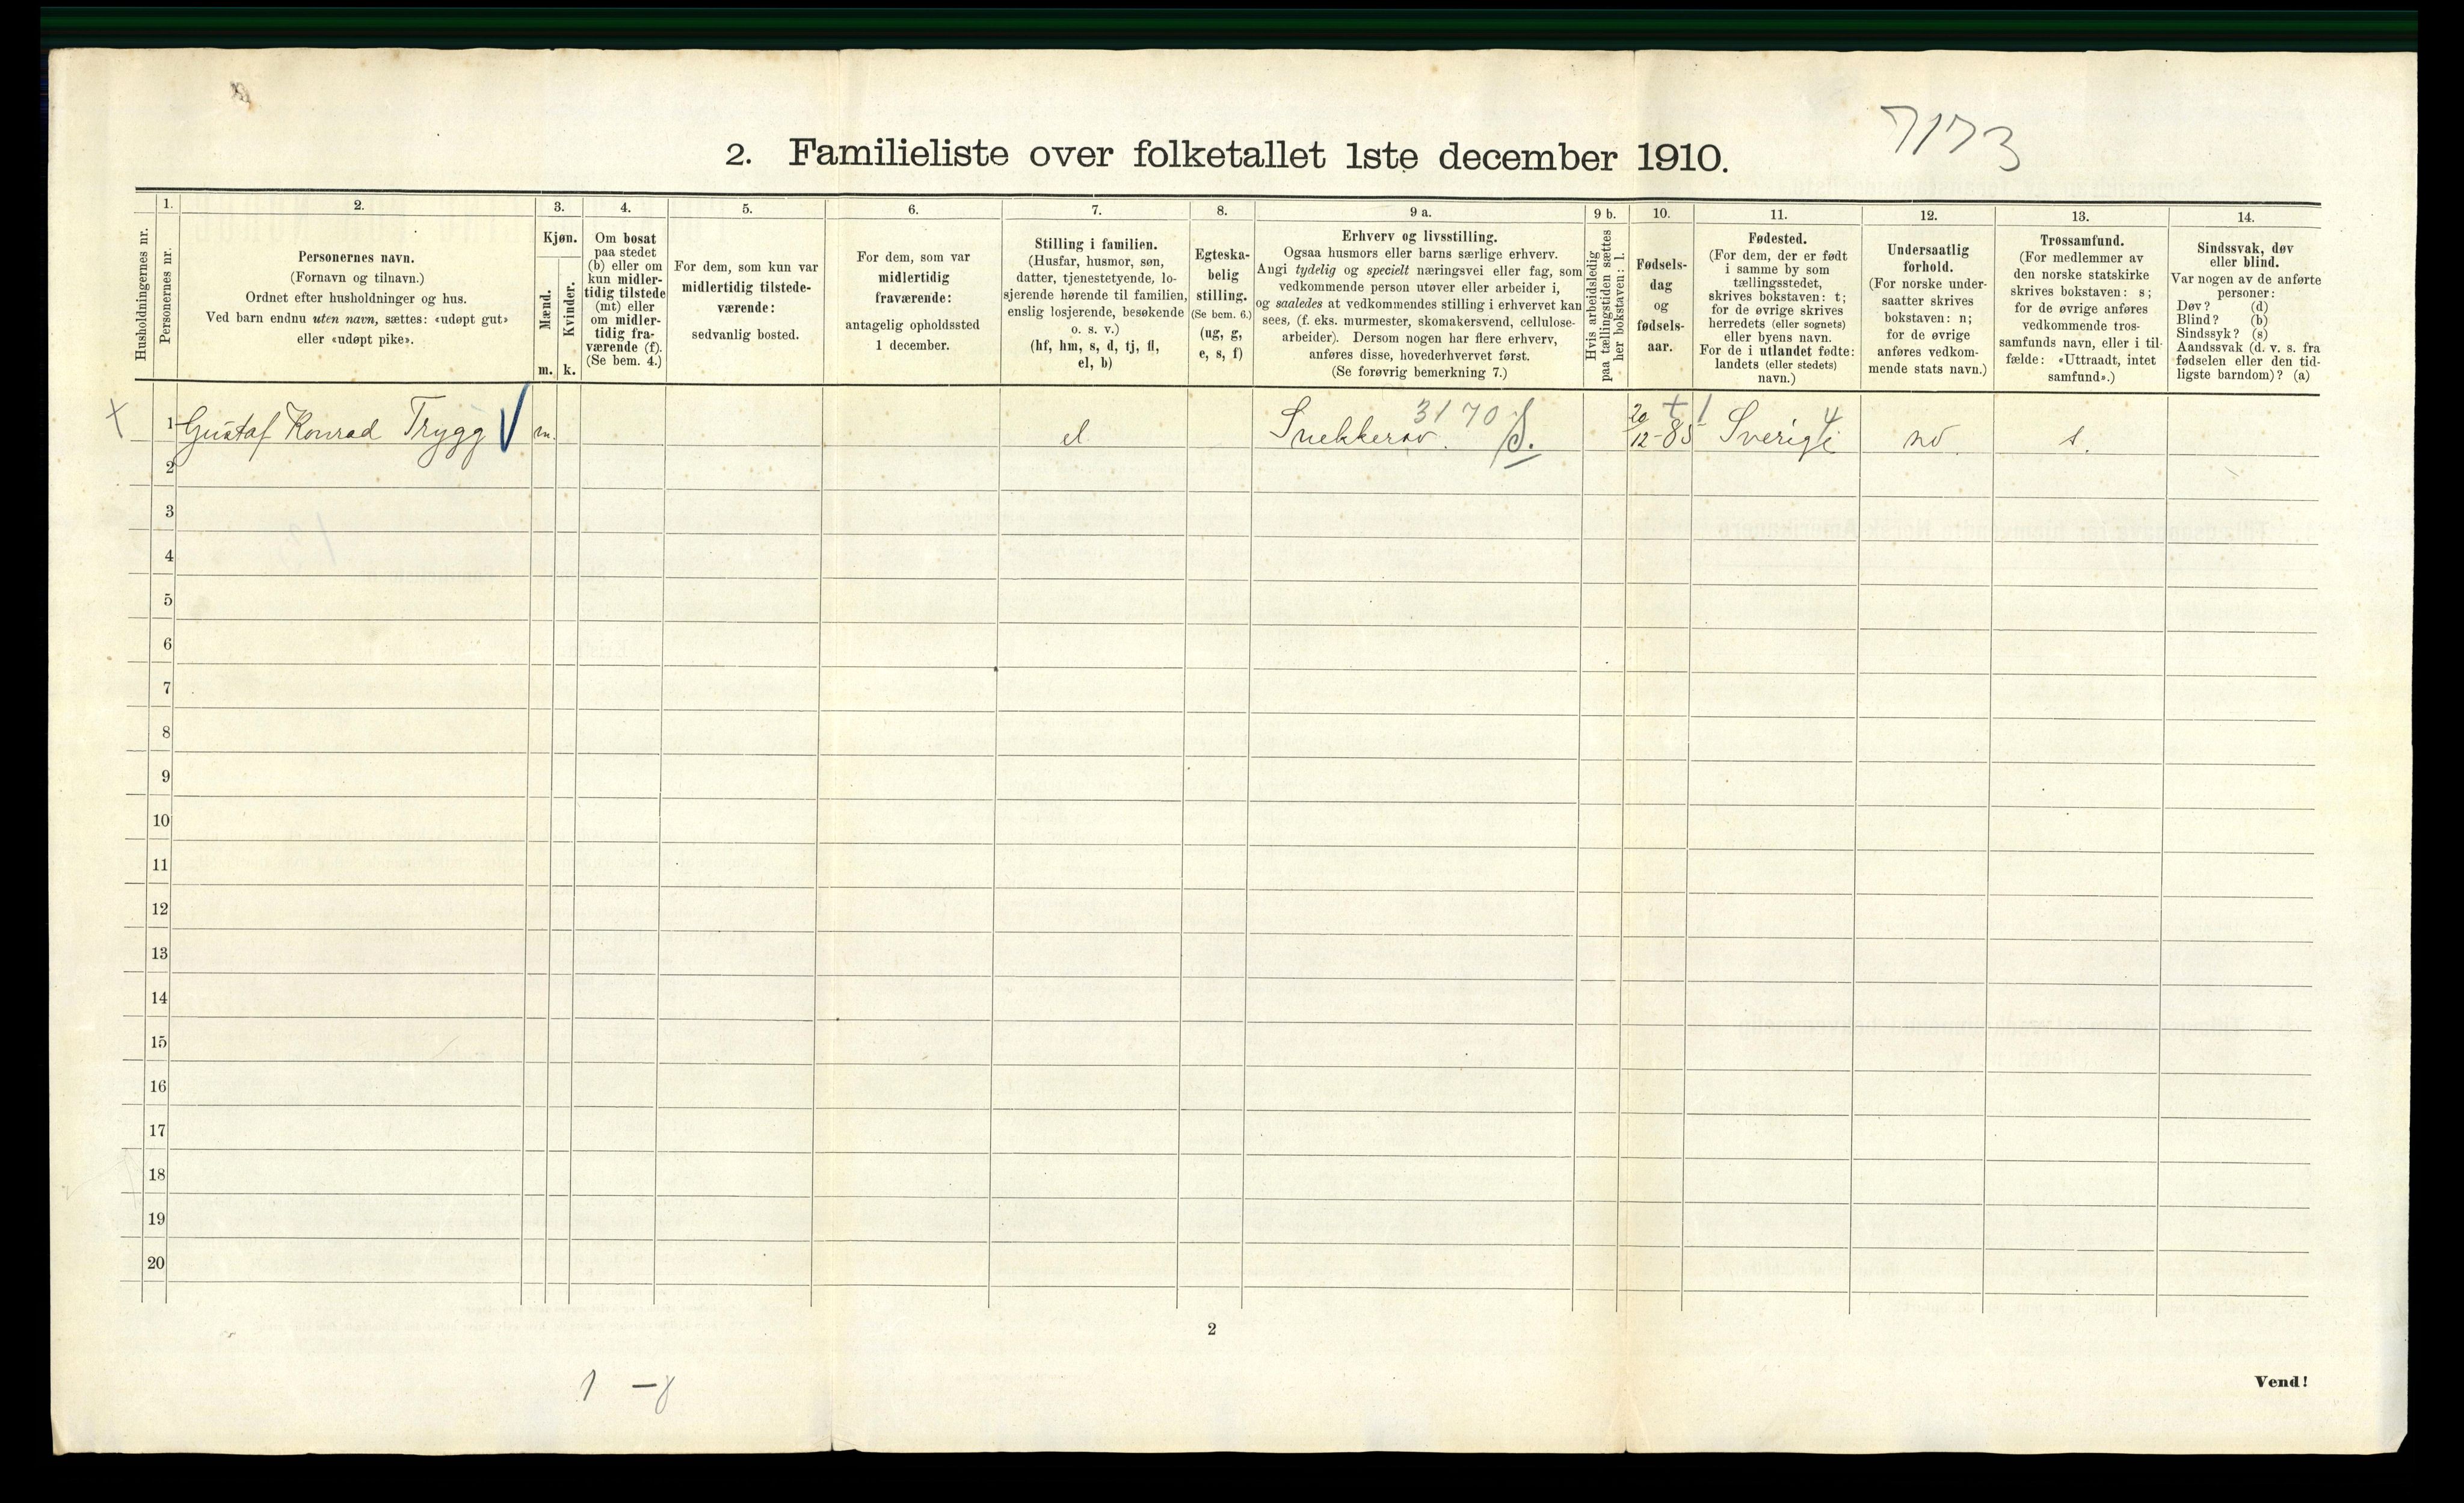 7173
2. Familieliste over folketallet 1ste december 1910.
Husholdningernes nr.
1.
Personernes nr.
2.
Personernes navn.
(Fornavn og tilnavn.)
Ordnet efter husholdninger og hus.
Ved barn endnu uten navn, sættes: «udøpt gut»
eller «udøpt pike».
3.
Kjøn.
Mænd.
Kvinder.
m. k.
4.
Om bosat
paa stedet
(b) eller om
kun midler-
tidig tilstede
(mt) eller
om midler-
tidig fra-
værende (f).
(Se bem. 4.)
5.
For dem, som kun var
midlertidig tilstede-
værende:
sedvanlig bosted.
6.
For dem, som var
midlertidig
fraværende:
antagelig opholdssted
1 december.
7.
Stilling i familien.
(Husfar, husmor, søn,
datter, tjenestetyende, lo-
sjerende hørende til familien,
enslig losjerende, besøkende
o. s. v.)
(hf, hm, s, d, tj, fl,
el, b)
8.
Egteska-
belig
stilling.
(Se bem. 6.)
(ug, g,
e, s, f)
9 a.
Erhverv og livsstilling.
Ogsaa husmors eller barns særlige erhverv.
Angi tydelig og specielt næringsvei eller fag, som
vedkommende person utøver eller arbeider i,
og saaledes at vedkommendes stilling i erhvervet kan
sees, (f. eks. murmester, skomakersvend, cellulose-
arbeider). Dersom nogen har flere erhverv,
anføres disse, hovederhvervet først.
(Se forøvrig bemerkning 7.)
9 b.
Hvis arbeidsledig
paa tællingstiden sættes
her bokstaven: l.
10.
Fødsels-
dag
og
fødsels-
aar.
11.
Fødested.
(For dem, der er født
i samme by som
tællingsstedet,
skrives bokstaven: t;
for de øvrige skrives
herredets (eller sognets)
eller byens navn.
For de i utlandet fødte:
landets (eller stedets)
navn.)
12.
Undersaatlig
forhold.
(For norske under-
saatter skrives
bokstaven: n;
for de øvrige
anføres vedkom-
mende stats navn.)
13.
Trossamfund.
(For medlemmer av
den norske statskirke
skrives bokstaven: s;
for de øvrige anføres
vedkommende tros-
samfunds navn, eller i til-
fælde: «Uttraadt, intet
samfund».)
14.
Sindssvak, døv
eller blind.
Var nogen av de anførte
personer:
Døv? (d)
Blind? (b)
Sindssyk? (s)
Aandssvak (d. v. s. fra
fødselen eller den tid-
ligste barndom)? (a)
1 Gustaf Konrad Trygg m. el Snekkersv. 3170 S. 20/12-85 Sverige 4 s.
2
3
4
5
6
7
8
9
10
11
12
13
14
15
16
17
18
19
20
2
1 -
Vend!